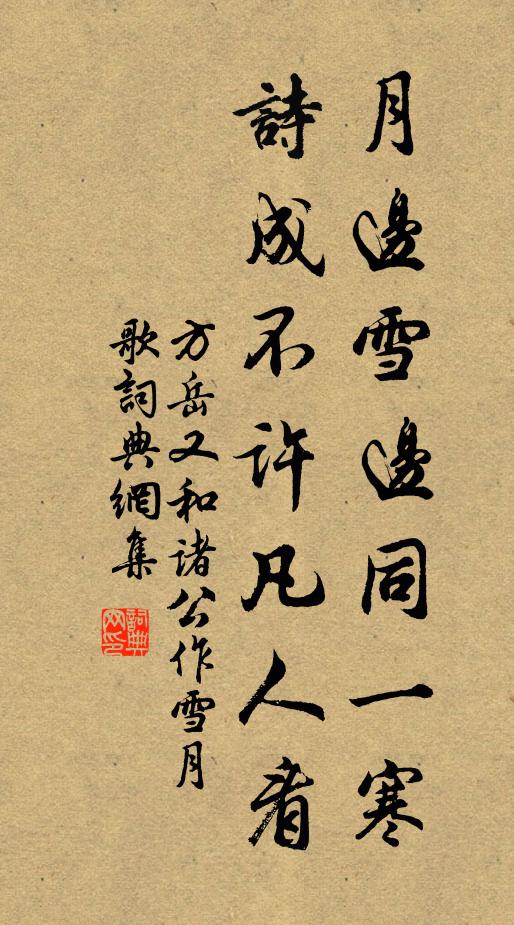 月邊雪邊同一寒
詩成不許凡人看
方岳又和諸公作雪月
歌詞典網集
詞典網印